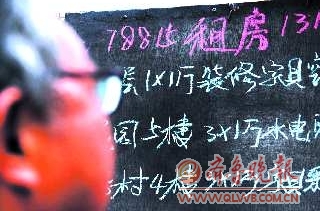 78815租房131
层1X1厅装修家具
园5楼 3X1厅水电
村4楼
齐鲁晚报
WWW.QLWB.COM.CN